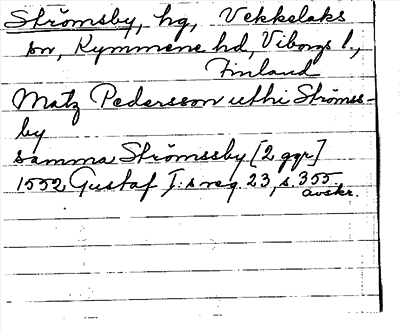 Strömsby, hg, Vekkelaks
sn, Kymmene hd, Viborgs l.,
Finland
Matz Pedersson uthi Strömss-
by
samma Strömssby [2 ggr]
1552 Gustaf I:s reg. 23, s. 355
avskr.